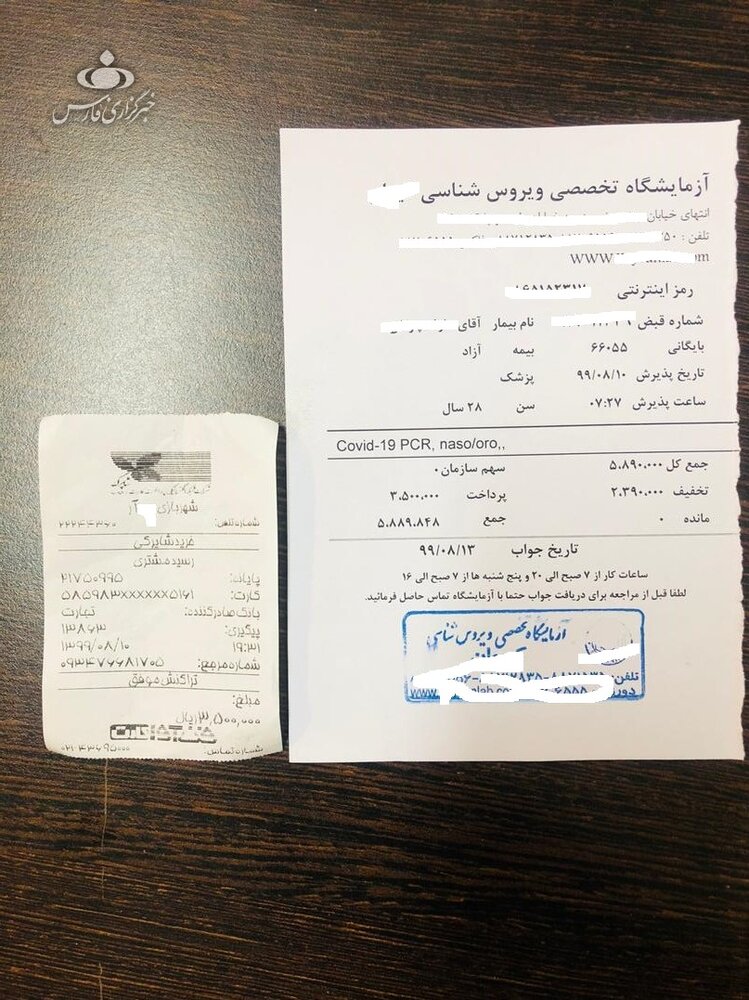 خبرگزاری فارس
آزمایشگاه تخصصی ویروس شناسی
انتهای خیابان
تلفن :
WWW.
رمز اینترنتی
شماره قبض
نام بیمار آقای
بایگانی ۶۶۰۵۵ بیمه آزاد
تاریخ پذیرش ۹۹/۰۸/۱۰ پزشک
ساعت پذیرش ۰۷:۲۷ سن ۲۸ سال
Covid-19 PCR, naso/oro,,
جمع کل ۵.۸۹۰.۰۰۰ سهم سازمان ۰
تخفیف ۲.۳۹۰.۰۰۰ پرداخت ۳.۵۰۰.۰۰۰
مانده ۰ جمع ۵.۸۸۹.۸۴۸
تاریخ جواب ۹۹/۰۸/۱۳
ساعات کار از ۷ صبح الی ۲۰ و پنج شنبه ها از ۷ صبح الی ۱۶
لطفا قبل از مراجعه برای دریافت جواب حتما با آزمایشگاه تماس حاصل فرمائید.
آزمایشگاه تخصصی ویروس شناسی
تلفن:
شاپرک
شماره تلفن: ۲۲۲۴۴۳۶۰
خرید شاپرکی
رسیده مشتری
پایانه: ۲۱۷۵۰۹۹۵
کارت: ۵۸۵۹۸۳xxxxxx۵۱۶۱
بانک صادرکننده: تجارت
پیگیری: ۱۳۸۶۳
۱۳۹۹/۰۸/۱۰ ۱۹:۳۱
شماره مرجع: ۰۹۳۴۷۶۶۸۱۷۰۵
تراکنش موفق
مبلغ:
۳,۵۰۰,۰۰۰ ریال
فن آوا کارت
شماره تماس: